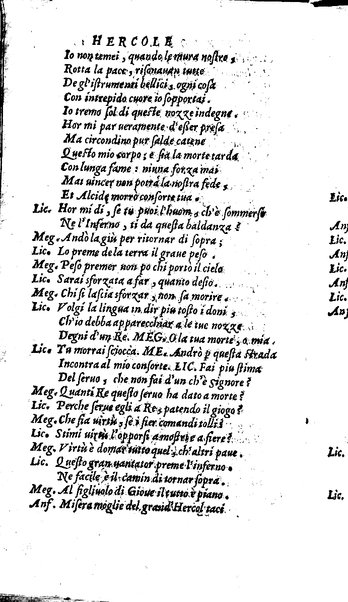 HERCOLE
Io non temei, quando le mura nostre,
Rotta la pace, risonauan tutte
De gl'istrumenti bellici, ogni cosa
Con intrepido cuore io sopportai.
Io tremo sol di queste nozze indegne.
Hor mi par veramente d'esser presa
Ma circondino pur salde catene
Questo mio corpo; e sia la morte tarda
Con lunga fame: niuna forza mai
Mai vincer non potrà la nostra fede,
Et Alcide morrò consorte tua.
Lic. Hor mi di, se tu puoi l'huom, ch'è sommerso
Ne l'Inferno, ti da questa baldanza?
Meg. Andò la giù per ritornar di sopra;
Lic. Lo preme de la terra il graue peso.
Meg. Peso premer non po chi portò il cielo
Lic. Sarai sforzata a far, quanto desio.
Meg. Chi si lascia sforzar, non sa morire.
Lic. Volgi la lingua in dir piu tosto i doni,
Ch'io debba apparecchiar a le tue nozze
Degni d'un Re. MEG. O la tua morte, o mia.
Lic. Tu morrai sciocca. ME. Andrò p questa strada
Incontra al mio consorte. LIC. Fai piu stima
Del seruo, che non fai d'un ch'è Signore?
Meg. Quanti Re questo seruo ha dato a morte?
Lic. Perche serue egli a Re, patendo il giogo?
Meg. Che sia virtù, se i fier comandi tolli?
Lic. Stimi uirtù l'opporsi a mostri e a fiere?
Meg. Virtù è domar tutto quel, ch'altri paue.
Lic. Questo gran uantator preme l'inferno.
Ne facile è il camin di tornar sopra.
Meg. Al figliuolo di Gioue il tutto è piano.
Anf. Misera moglie del grand'Hercol taci
Lic.
Anf
Lic.
Lic.